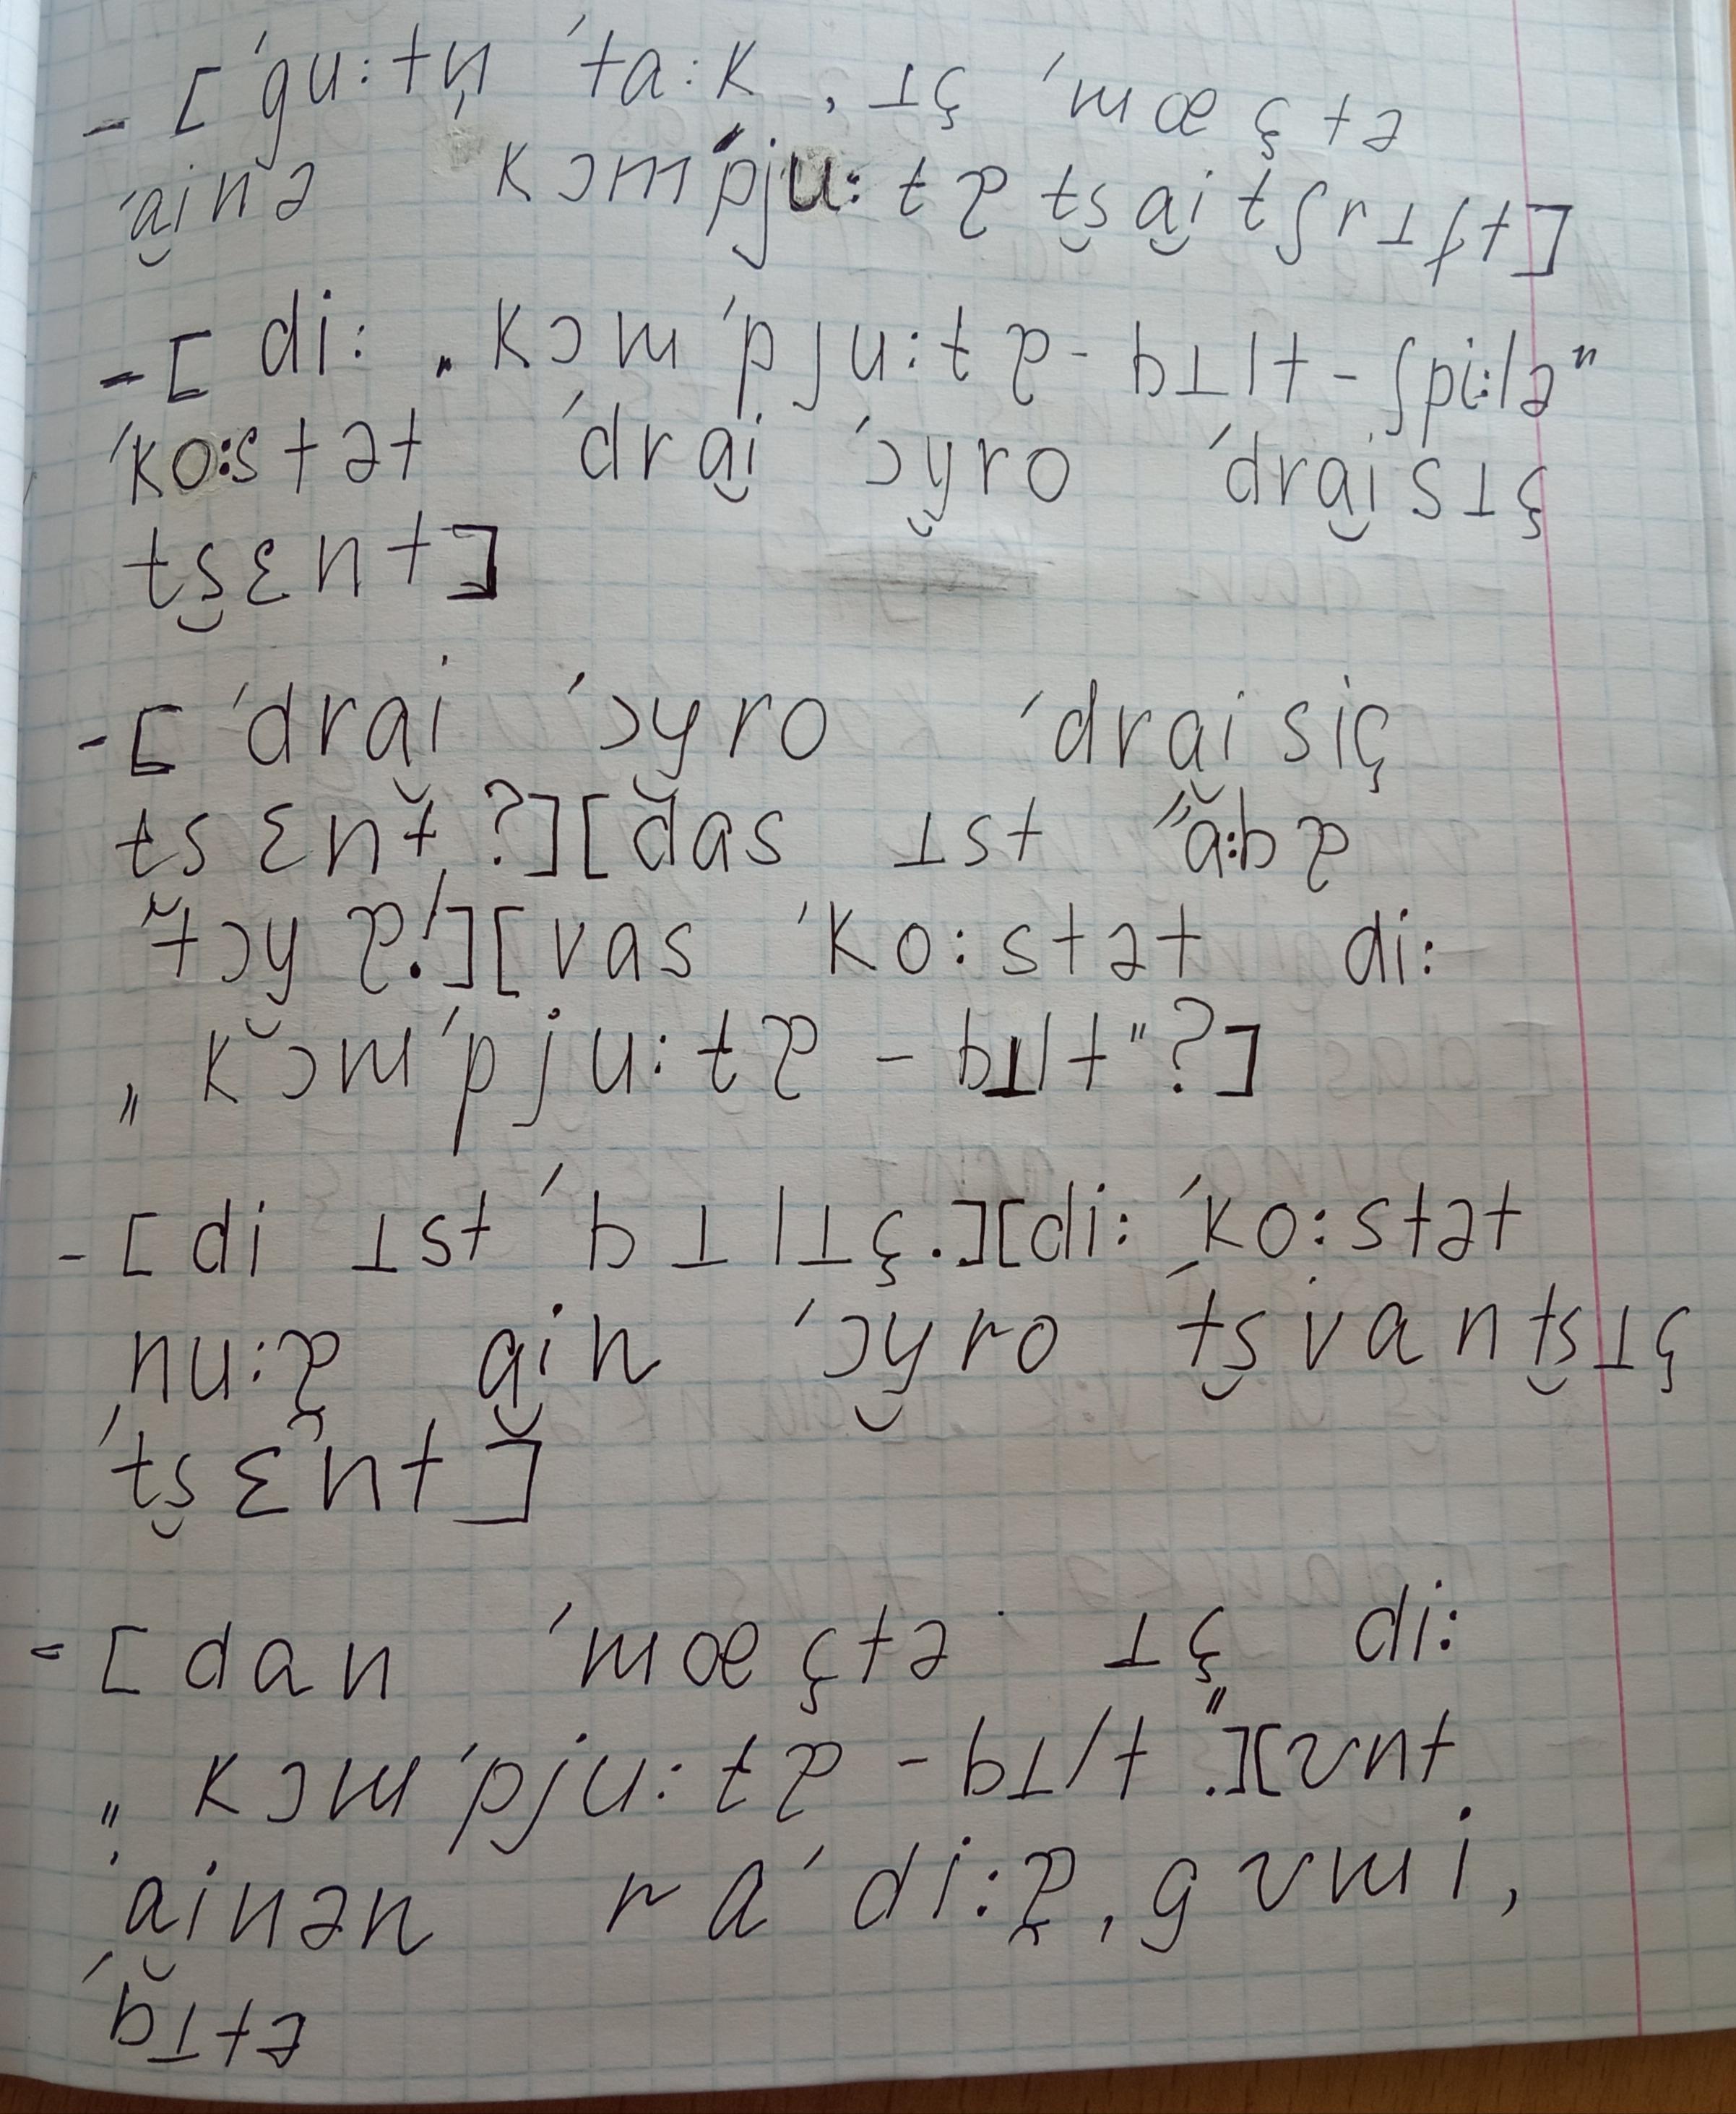 - [ˈɡu:tn̩ ˈta:k, ɪç ˈmœçtə
ˈai̯nə kɔmˈpju:tɐt͜sai̯tʃrɪft]
- [di: „kɔmˈpju:tɐ-bɪlt-ʃpi:lə“
ˈko:stət ˈdrai̯ ˈɔy̯ro ˈdrai̯sɪç
t͜sɛnt]
- [ˈdrai̯ ˈɔy̯ro ˈdrai̯siç
tsɛnt?][das ɪst ˈa:bɐ
ˈtɔy̯ɐ!][vas ˈko:stət di:
„kɔmˈpju:tɐ-bɪlt“?]
- [di ɪst ˈbɪlɪç.][di: ˈko:stət
nu:ɐ̯ ai̯n ˈɔy̯ro ˈt͜svant͜sɪç
ˈt͜sɛnt]
- [dan ˈmœçtə ɪç di:
„kɔmˈpju:tɐ-bɪlt“.][ʊnt
ˈai̯nən raˈdi:ɐ̯ˌɡʊmi,
ˈbɪtə